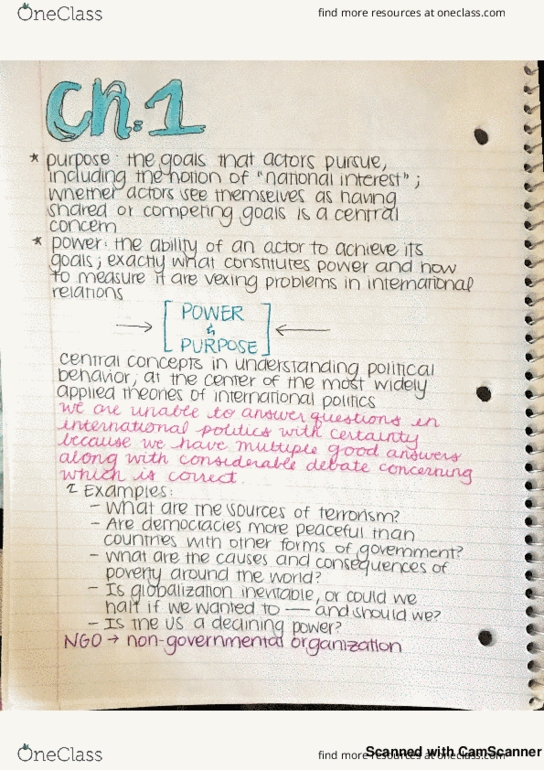 OneClass
find more resources at oneclass.com
Ch.1
* purpose: the goals that actors pursue,
including the notion of "national interest";
whether actors see themselves as having
shared or competing goals is a central
concern
* power: the ability of an actor to achieve its
goals; exactly what constitutes power and how
to measure it are vexing problems in international
relations
→ [ POWER
&
PURPOSE ] ←
central concepts in understanding political
behavior, at the center of the most widely
applied theories of international politics
we are unable to answer questions in
international politics with certainty
because we have multiple good answers
along with considerable debate concerning
which is correct.
Examples:
- What are the sources of terrorism?
- Are democracies more peaceful than
countries with other forms of government?
- what are the causes and consequences of
poverty around the world?
- Is globalization inevitable, or could we
halt if we wanted to — and should we?
- Is the US a declining power?
NGO → non-governmental organization
OneClass
find more resources at oneclass.com
Scanned with CamScanner